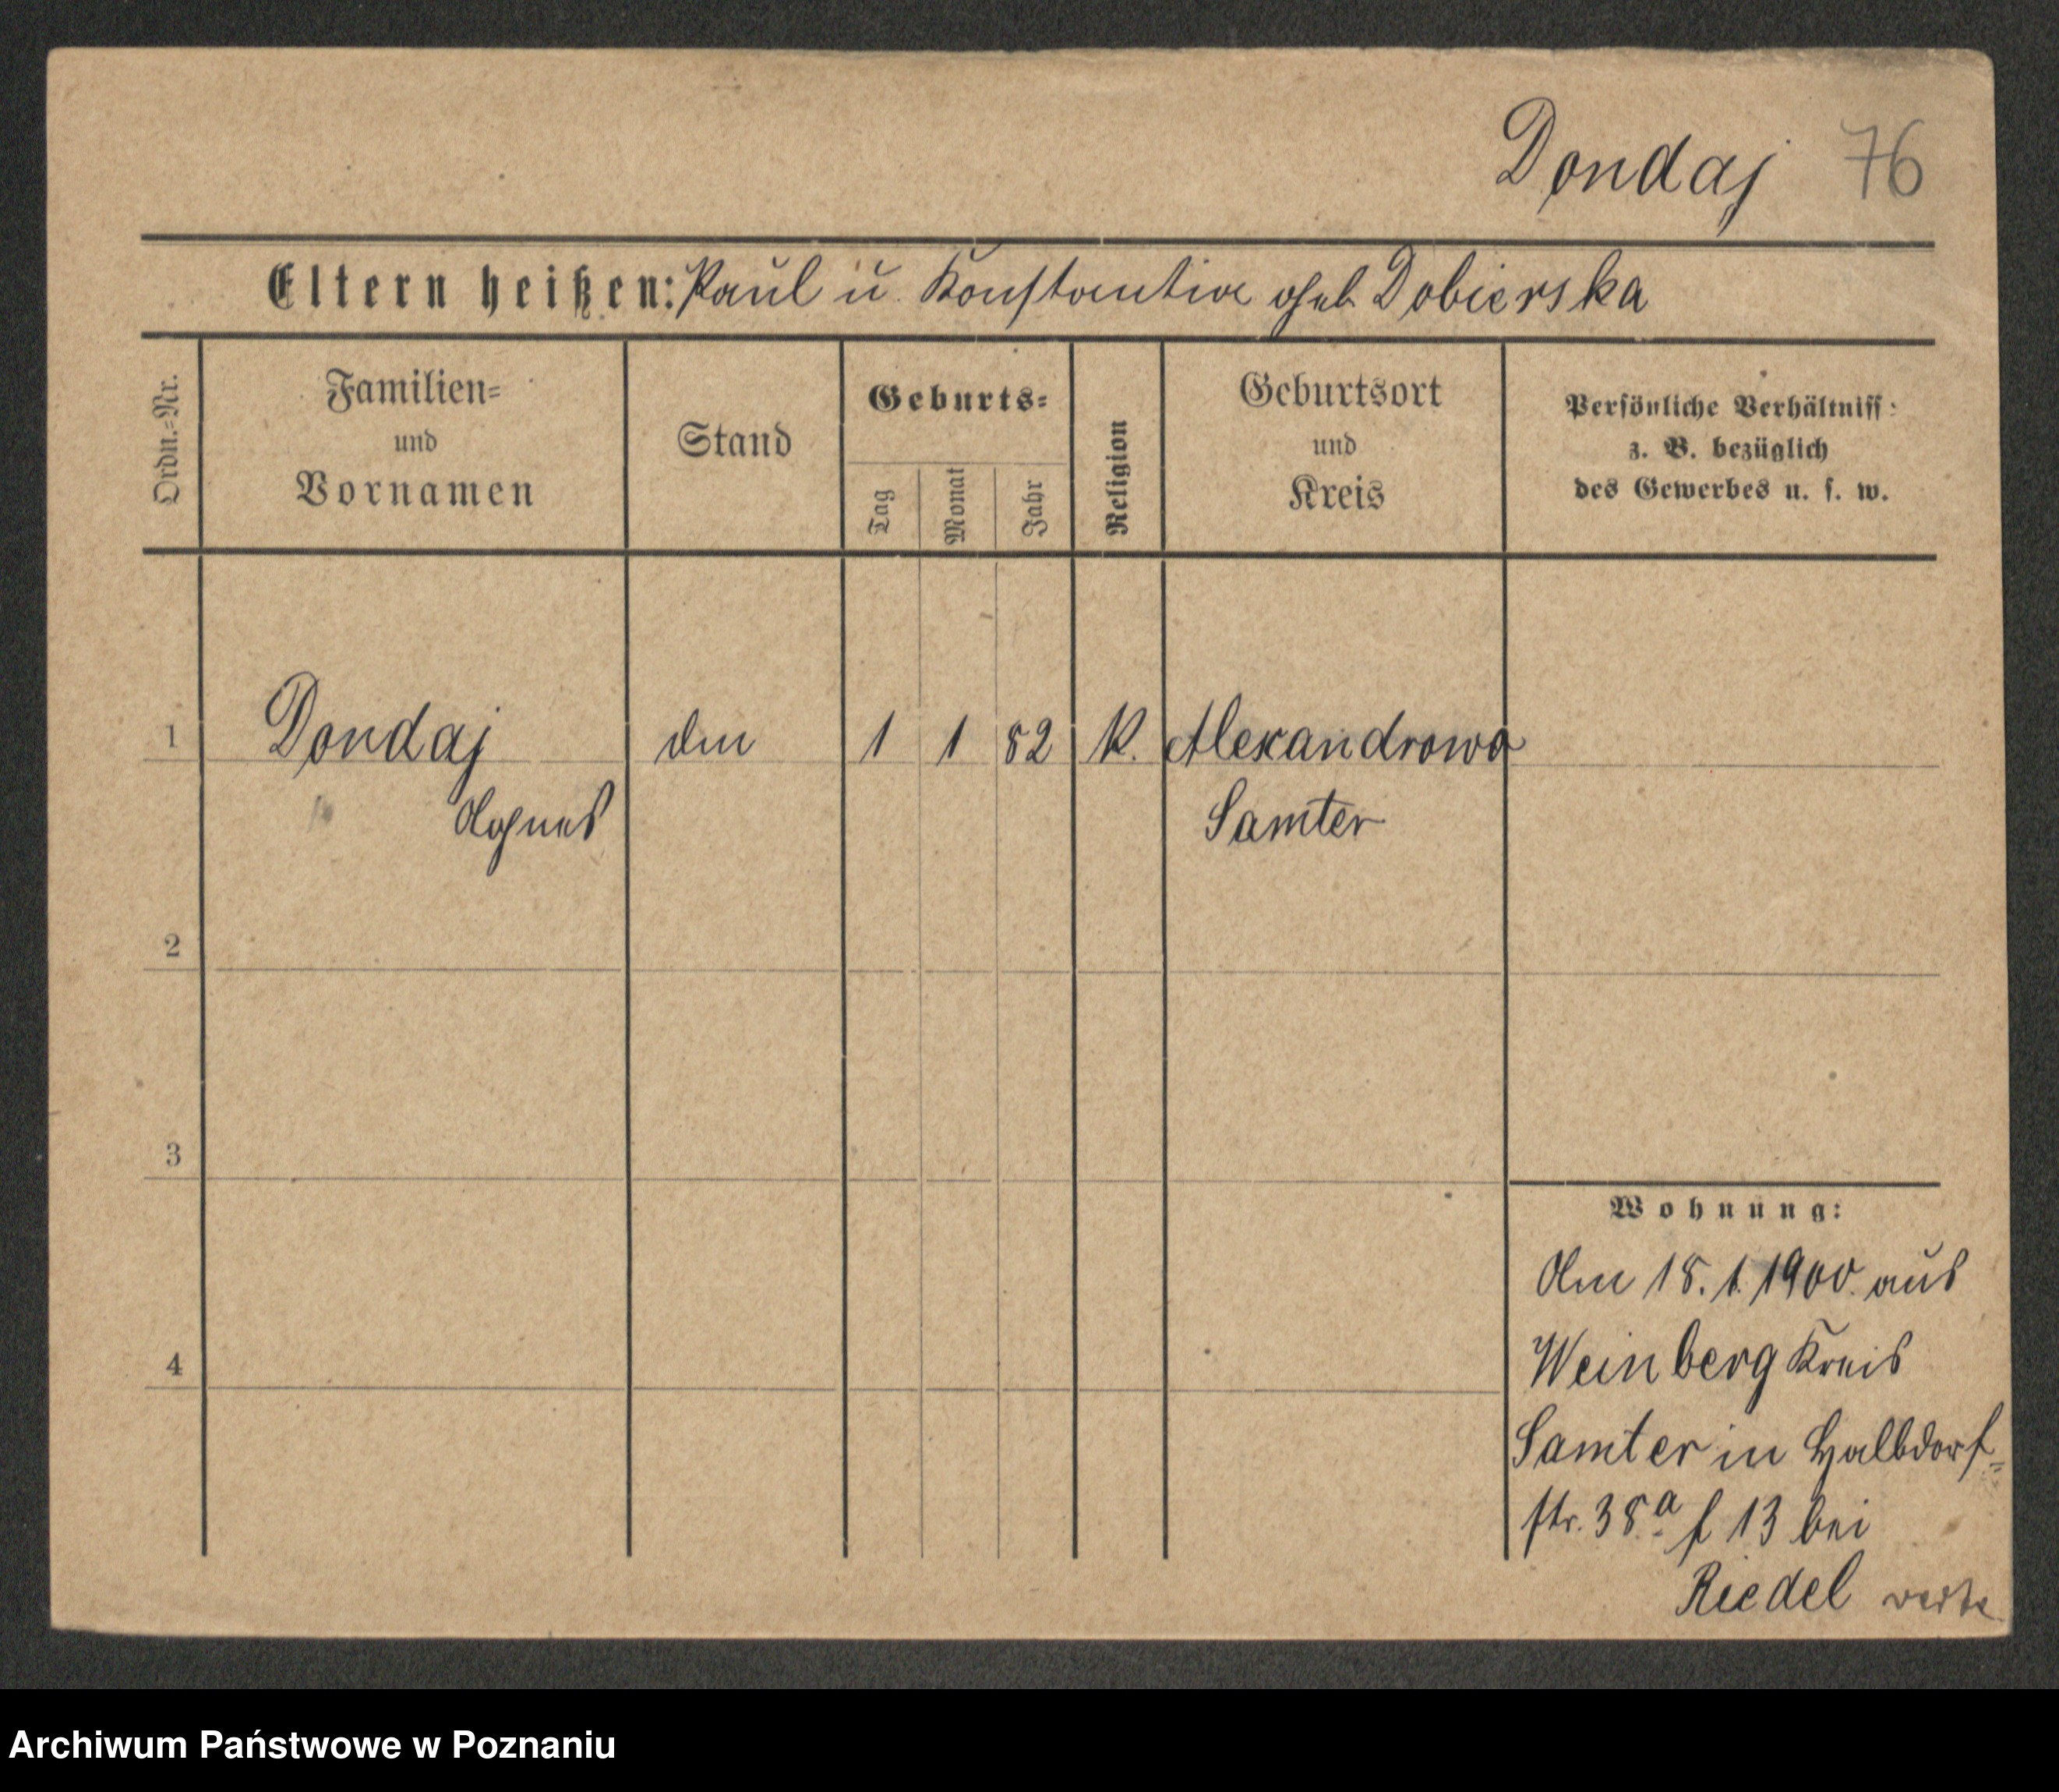 Dondaj 76
Eltern heißen: Paul u. Konstantia geb. Dobierska
Ordn.=Nr.
Familien=
und
Vornamen
Stand
Geburts=
Tag
Monat
Jahr
Religion
Geburtsort
und
Kreis
Persönliche Verhältniss:
z. B. bezüglich
des Gewerbes u. s. w.
1 Dondaj 1 1 82 K. Alexandrowo
Agnes Samter
2
3
4
Wohnung:
Am 18. 1. 1900. aus
Weinberg Kreis
Samter in Halbdorf=
str. 38a f 13 bei
Riedel verte
Archiwum Państwowe w Poznaniu